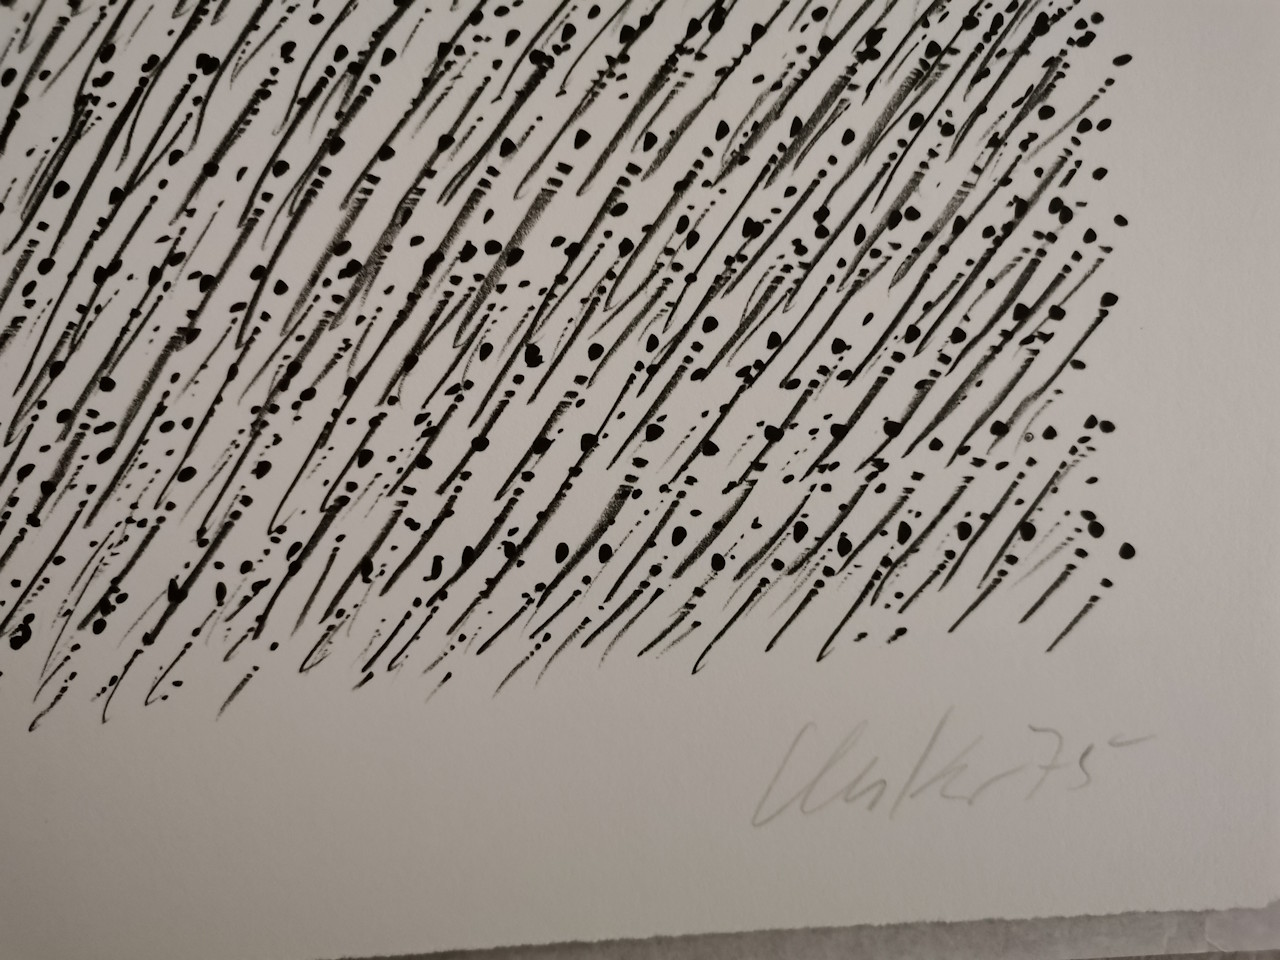 Uecker 75